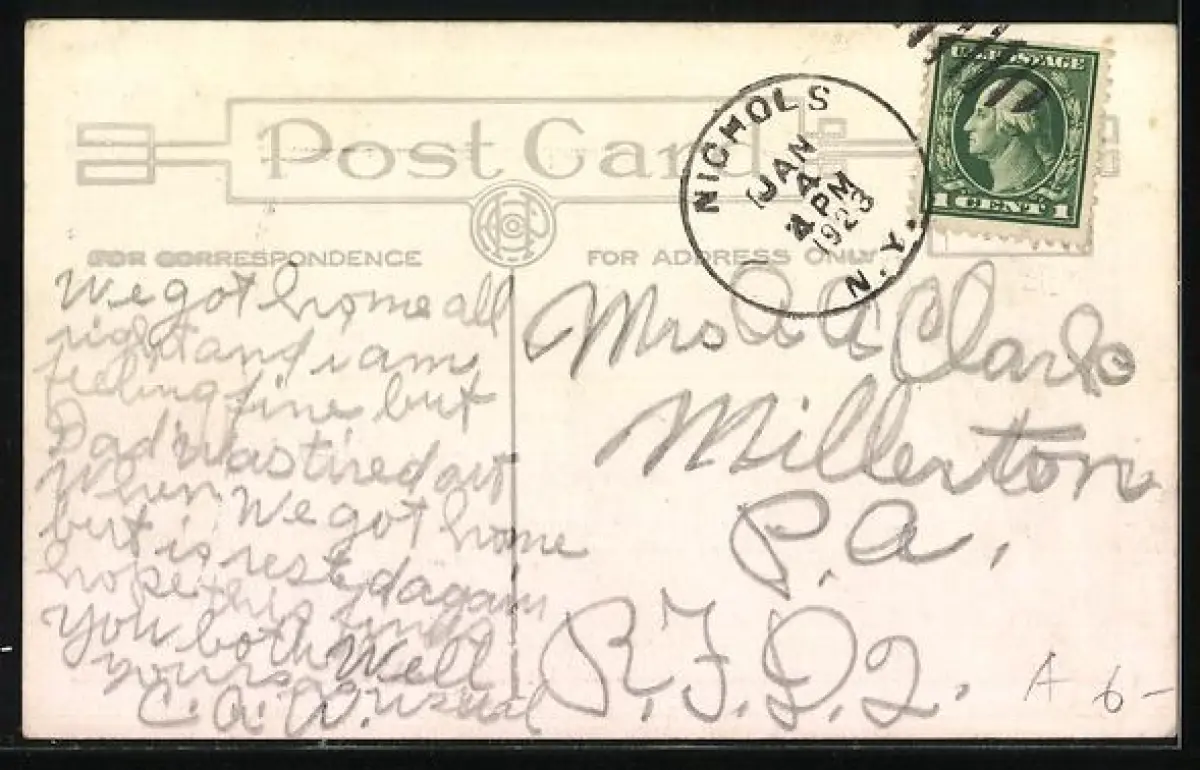 Post Card
NICHOLS
JAN
4
PM
1923
N.Y.
U.S. POSTAGE
1 CENT 1
FOR CORRESPONDENCE
FOR ADDRESS ONLY
We got home all
right and i am
feeling fine but
Dad was tired out
When We got home
but is rested again
hope this finds
You both Well
yours as usual
C. A. W.
Mrs A A Clark
Millerton
P.a.
R.F.D. 2.
A 6-